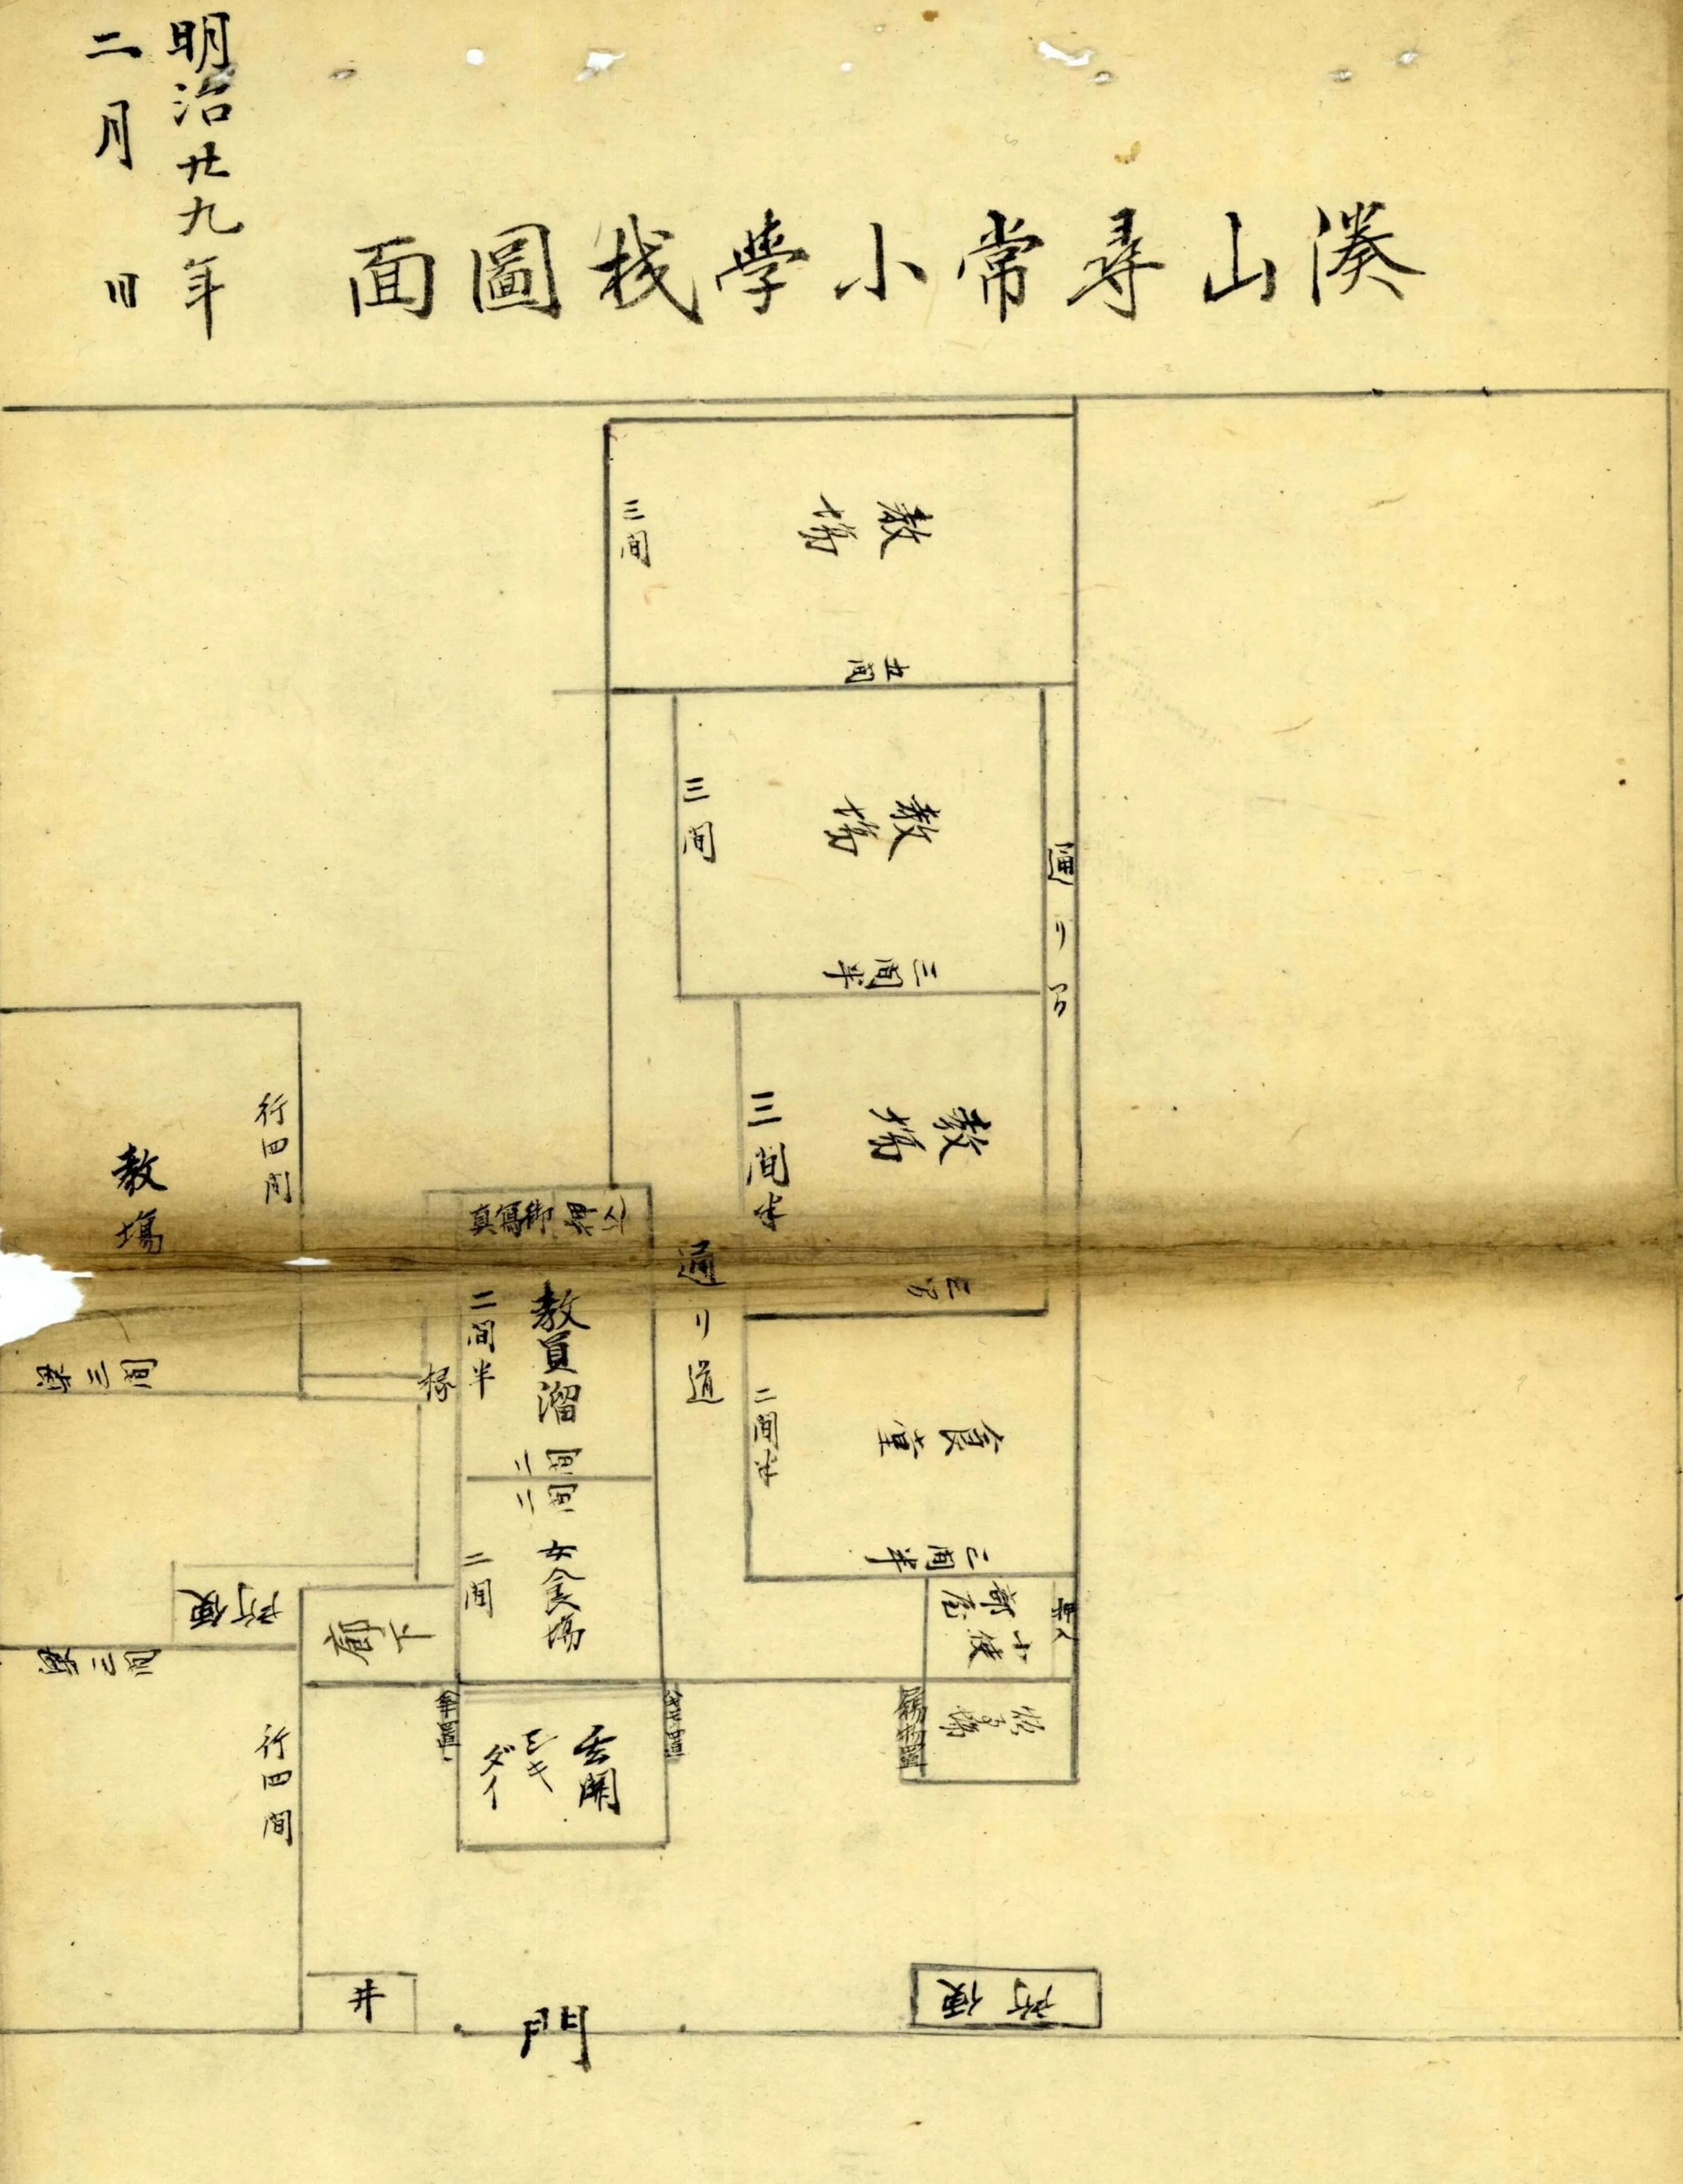 湊山尋常小學校圖面
明治廿九年
二月 日
教場
三間
五間
教場
三間
三間半
通り
教場
三間半
三間
通り道
食堂
二間半
三間半
小使部屋
物置
御寫真
教員溜
二間半
二間
二間
女食場
二間
椽
玄関
シキダイ
傘置
廊下
便所
教場
行四間
梁三間
梁三間
行四間
井
門
便所